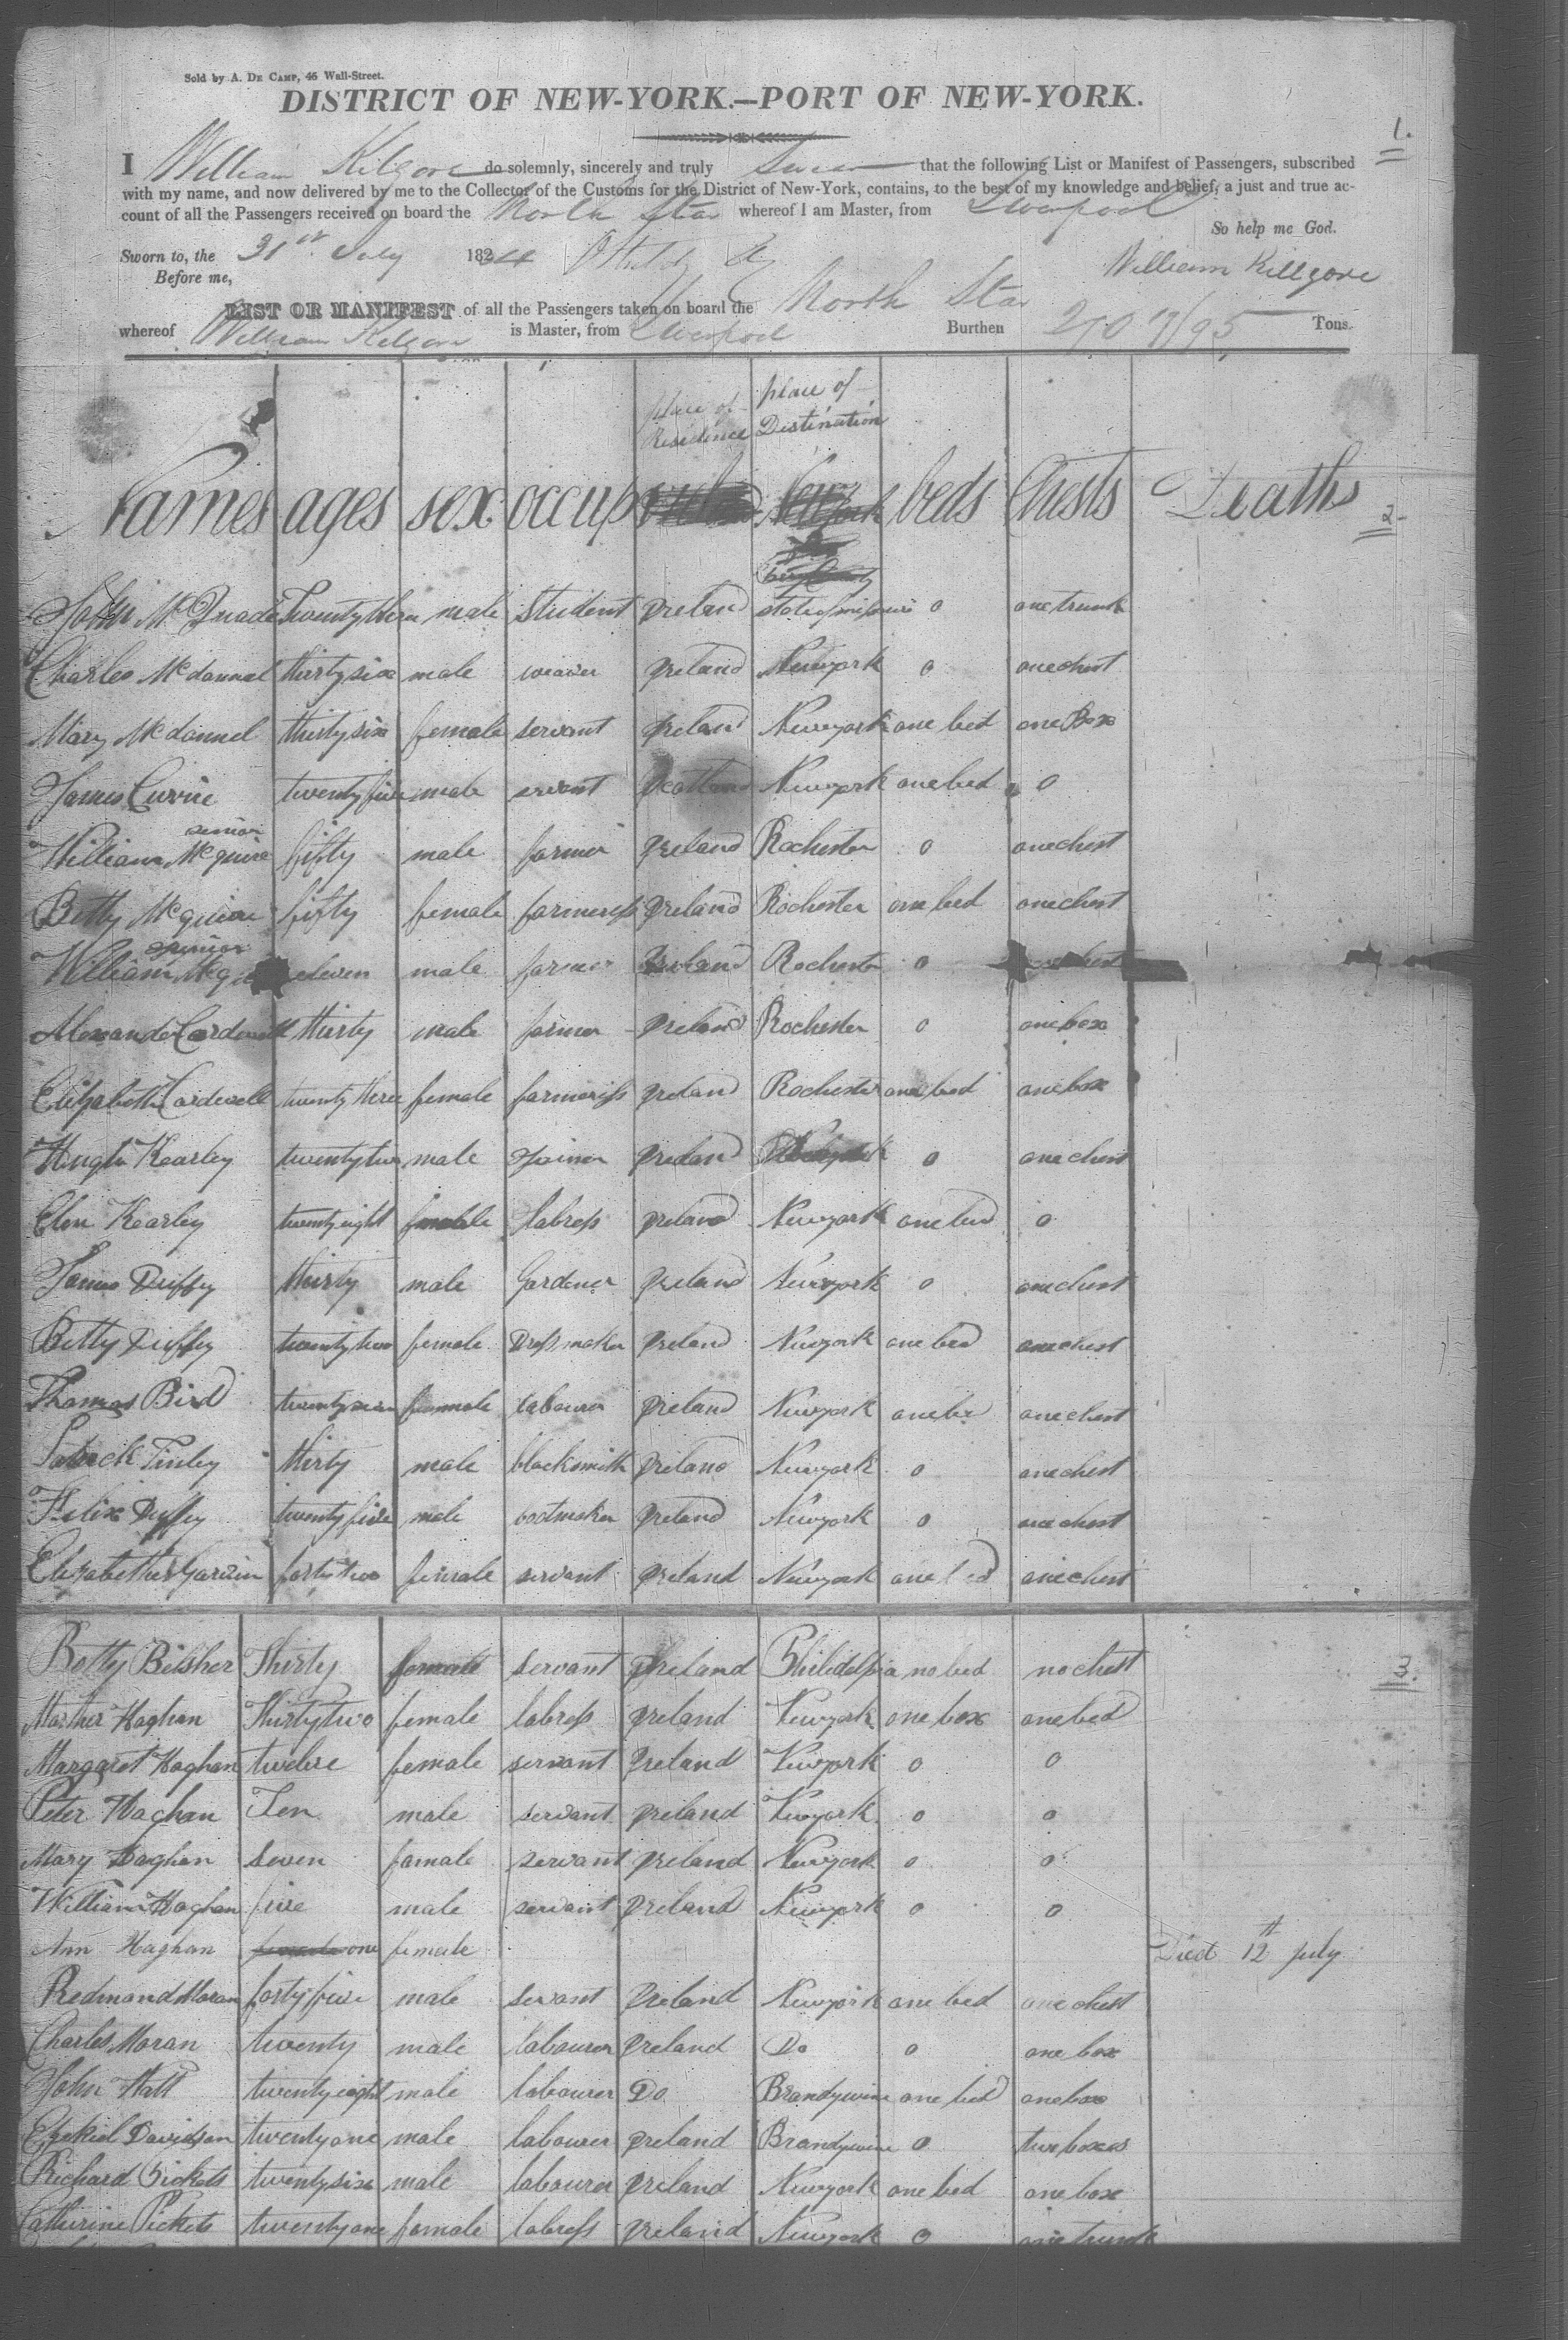 Sold by A. De Camp, 46 Wall-Street.
DISTRICT OF NEW-YORK.—PORT OF NEW-YORK.
1.
I William Kilgore do solemnly, sincerely and truly Swear that the following List or Manifest of Passengers, subscribed
with my name, and now delivered by me to the Collector of the Customs for the District of New-York, contains, to the best of my knowledge and belief, a just and true ac-
count of all the Passengers received on board the North Star whereof I am Master, from Liverpool
So help me God.
Sworn to, the 31st July 1824
Before me, William Killgore
LIST OR MANIFEST of all the Passengers taken on board the North Star
whereof William Kilgore is Master, from Liverpool Burthen 270 17/95 Tons.
place of Residence place of Distination
Names ages sex occup beds Chests Deaths
2
John McQuade Twenty three male student Ireland state of missouri 0 one trunk
Charles Mcdannel thirty six male weaver Ireland Newyork 0 one chest
Mary Mcdannel thirty six female servant Ireland Newyork one bed one Box
James Currie twenty five male servant Scotland Newyork one bed 0
senior
William Mcguire fifty male farmer Ireland Rochester 0 one chest
Betty Mcguire fifty female farmeress Ireland Rochester one bed one chest
junior
William eleven male farmer Ireland Rochester 0
Alexander Cardwell thirty male farmer Ireland Rochester 0 one box
Elizabeth Cardwell twenty three female farmeriss Ireland Rochester one bed one box
Hugh Kearley twenty two male Joiner Ireland 0 one chest
Elen Kearley twenty eight female labress Ireland Newyork one bed 0
James Duffey thirty male Gardener Ireland Newyork 0 one chest
Betty Duffey twenty two female Dress maker Ireland Newyork one bed one chest
Thomas Bird male labourer Ireland Newyork one bed one chest
Patrick Finley thirty male blacksmith Ireland Newyork 0 one chest
Felix Duffey twenty five male bootmaker Ireland Newyork 0 one chest
Elizabeth forty two female servant Ireland Newyork one bed one chest
3.
Betty Belsher Thirty female servant Ireland Philidelpia no bed no chest
Marther Haghan Thirty two female labress Ireland Newyork one box one bed
Margaret Haghan twelve female servant Ireland Newyork 0 0
Peter Haghan Ten male servant Ireland Newyork 0 0
Mary Haghan Seven famale servant Ireland Newyork 0 0
William Haghan five male servant Ireland Newyork 0 0
Ann Haghan one female Died 12th July
Redmond Moran forty five male servant Ireland Newyork one bed one chest
Charles Moran twenty male labourer Ireland Do 0 one box
John Hall twenty eight male labourer Do Brandywine one bed one box
Ezekiel Davidson twenty one male labourer Ireland Brandywine 0 two boxes
Richard Pickets twenty six male labourer Ireland Newyork one bed one box
Catherine Pickets twenty one female labress Ireland Newyork 0 one trunk